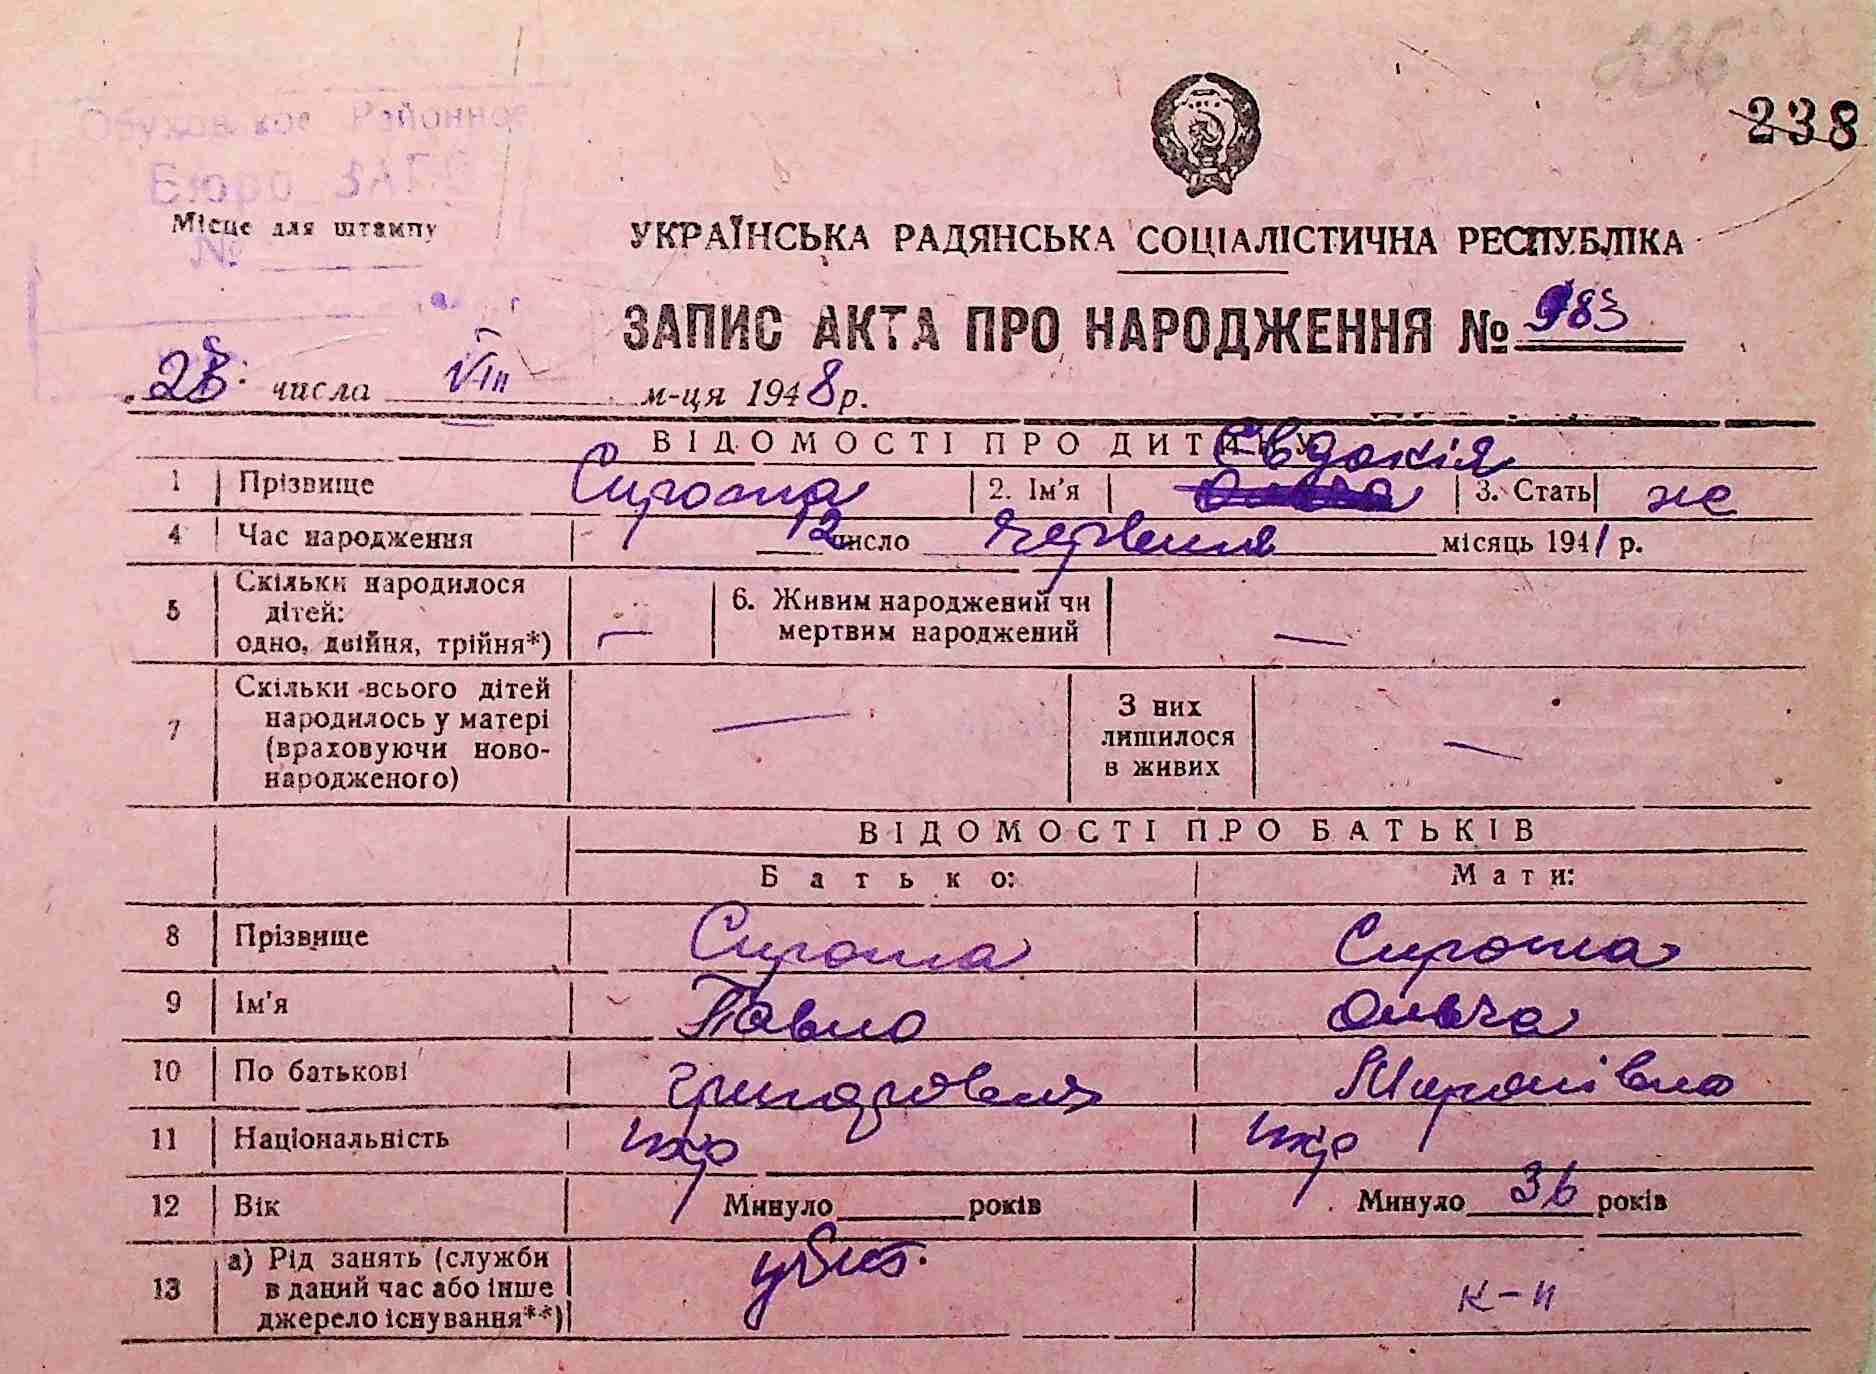 236
238
Обуховское Районное
Бюро ЗАГС
Місце для штампу
№
УКРАЇНСЬКА РАДЯНСЬКА СОЦІАЛІСТИЧНА РЕСПУБЛІКА
ЗАПИС АКТА ПРО НАРОДЖЕННЯ № 983
числа VIII м-ця 1948 р.
ВІДОМОСТІ ПРО ДИТИНУ
Євдокія
1 Прізвище Сирота 2. Ім'я Ольга 3. Стать ж
4 Час народження 12 число червня місяць 1941 р.
5 Скільки народилося дітей: одно, двійня, трійня*) — 6. Живим народжений чи мертвим народжений —
7 Скільки всього дітей народилось у матері (враховуючи ново-народженого) — З них лишилося в живих —
ВІДОМОСТІ ПРО БАТЬКІВ
Батько: Мати:
8 Прізвище Сирота Сирота
9 Ім'я Павло Ольга
10 По батькові Григорович Миронівна
11 Національність укр укр
12 Вік Минуло років Минуло 36 років
13 а) Рід занять (служби в даний час або інше джерело існування**) убит. к-ц